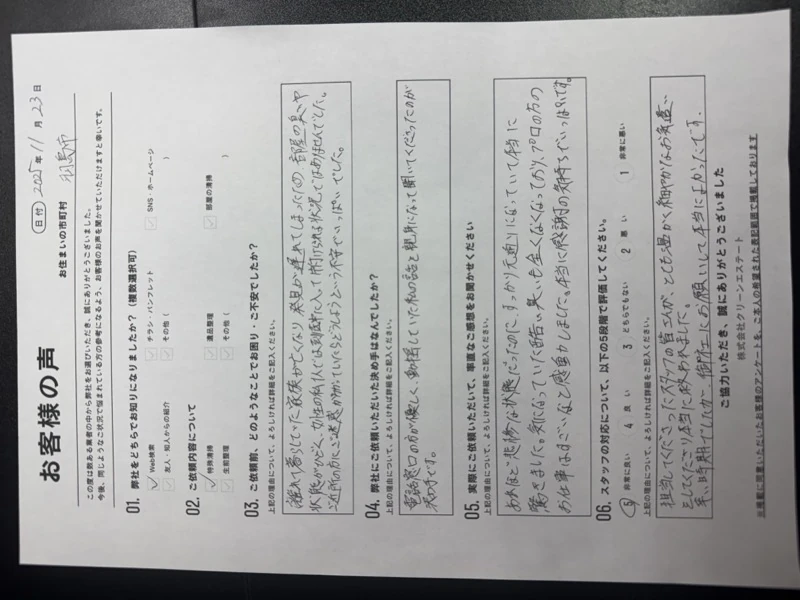 お客様の声
日付 2025年 11月 23日
この度は数ある業者の中から弊社をお選びいただき、誠にありがとうございました。
今後、同じようなご状況で悩まれている方の参考になるよう、お客様のお声を聞かせていただけますと幸いです。
お住まいの市町村 羽島市
01. 弊社をどちらでお知りになりましたか？（複数選択可）
Web検索 チラシ・パンフレット SNS・ホームページ
友人、知人からの紹介 その他（ ）
02. ご依頼内容について
特殊清掃 遺品整理 部屋の清掃
生前整理 その他（ ）
03. ご依頼前、どのようなことでお困り・ご不安でしたか？
上記の理由について、よろしければ詳細をご記入ください。
離れて暮らしていた家族が亡くなり 発見が遅れてしまったため、部屋の臭いや
状態がひどく、女性の私1人では到底中に入って片付けられる状況ではありませんでした。
ご近所の方にご迷惑がかかっていたらどうしようという不安でいっぱいでした。
04. 弊社にご依頼いただいた決め手はなんでしたか？
上記の理由について、よろしければ詳細をご記入ください。
電話窓口の方が優しく、動揺していた私の話を親身になって聞いてくださったのが
決め手です。
05. 実際にご依頼いただいて、率直なご感想をお聞かせください
上記の理由について、よろしければ詳細をご記入ください。
あれほど悲惨な状態だったのに、すっかり元通りになっていて本当に
驚きました。気になっていた酷い臭いも全くなくなっており、プロの方の
お仕事はすごいなと感動しました。本当に感謝の気持ちでいっぱいです。
06. スタッフの対応について、以下の5段階で評価してください。
5 非常に良い 4 良い 3 どちらでもない 2 悪い 1 非常に悪い
上記の理由について、よろしければ詳細をご記入ください。
担当してくださったスタッフの皆さんが、とても温かく細やかなお気遣い
をしてくださり本当に救われました。
辛い時期でしたが、御社にお願いして本当によかったです。
ご協力いただき、誠にありがとうございました
株式会社クリーンエステート
※掲載に同意いただいたお客様のアンケートを、ご本人の希望された表記範囲で掲載しております